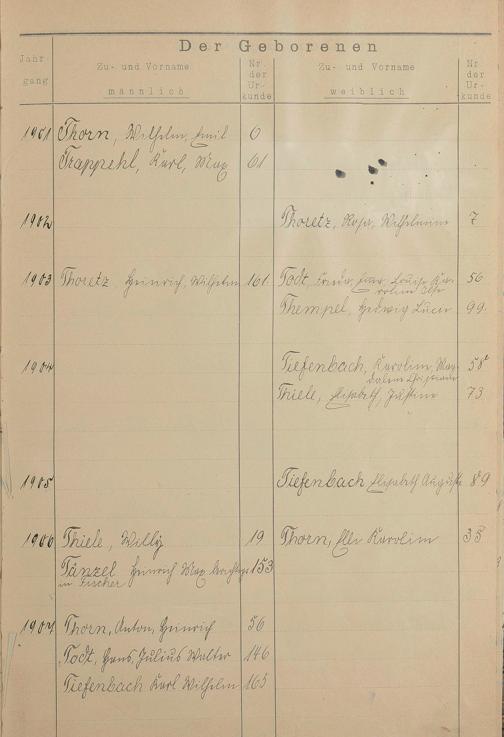 Der Geborenen
Jahr gang
Zu- und Vorname männlich
Nr. der Ur- kunde
Zu- und Vorname weiblich
Nr. der Ur- kunde
1901 Thorn, Wilhelm, Emil 6
Trappehl, Karl, Max 61
1902 Thoretz, Rosa, Wilhelmine 7
1903 Thoretz Heinrich, Wilhelm 161. Todt, Frieda, Luise Ka- 56
rolin Ilse
Thempel, Hedwig Lucie 99.
1904 Tiefenbach, Karolin, Mag- 58
dalena
Thiele, Elisabeth, Justine 73
1905 Tiefenbach Elisabeth Auguste 89
1906 Thiele, Willy 19 Thorn, Elli Karolin 35
Tänzel Heinrich Max 153
in Fischer
1907 Thorn, Anton, Heinrich 56
Todt, Hans, Julius Walter 146
Tiefenbach Karl Wilhelm 165